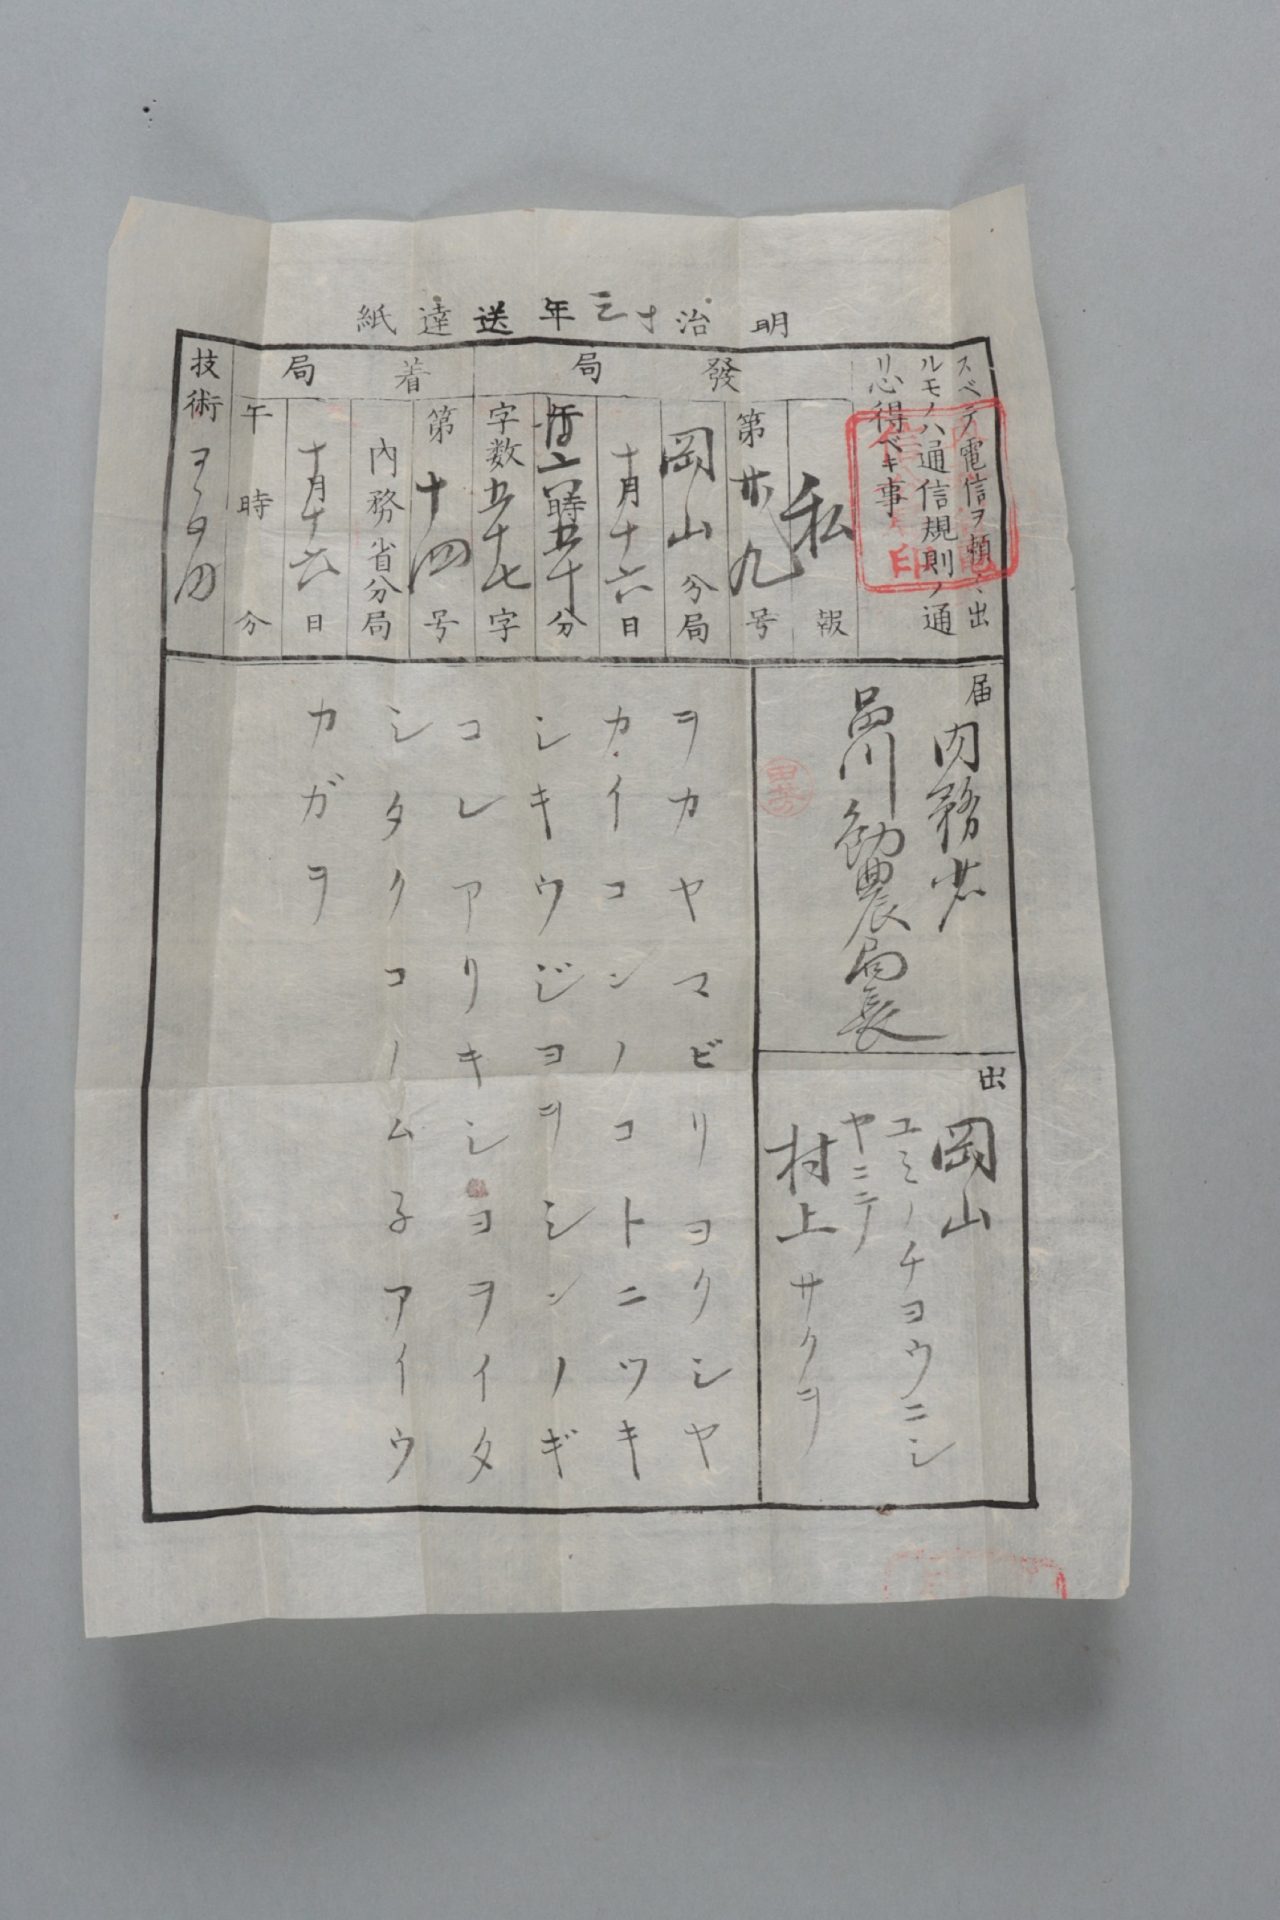 明治十三年送達紙
スベテ電信ヲ頼ミ出
ルモノハ通信規則ノ通
リ心得ベキ事
發局
私報
第廿九号
岡山分局
十月十六日
午后六時五十分
字数五十七字
着局
第十四号
内務省分局
十月十六日
午時分
技術
届
内務省
品川勧農局長
出
岡山
ユミノチヨウニシ
ヤニテ
村上サクヲ
ヲカヤマビリヨクシヤ
カイコンノコトニツキ
シキウジヨヲシンノギ
コレアリキシヨヲイタ
シタクコノム子アイウ
カガヲ